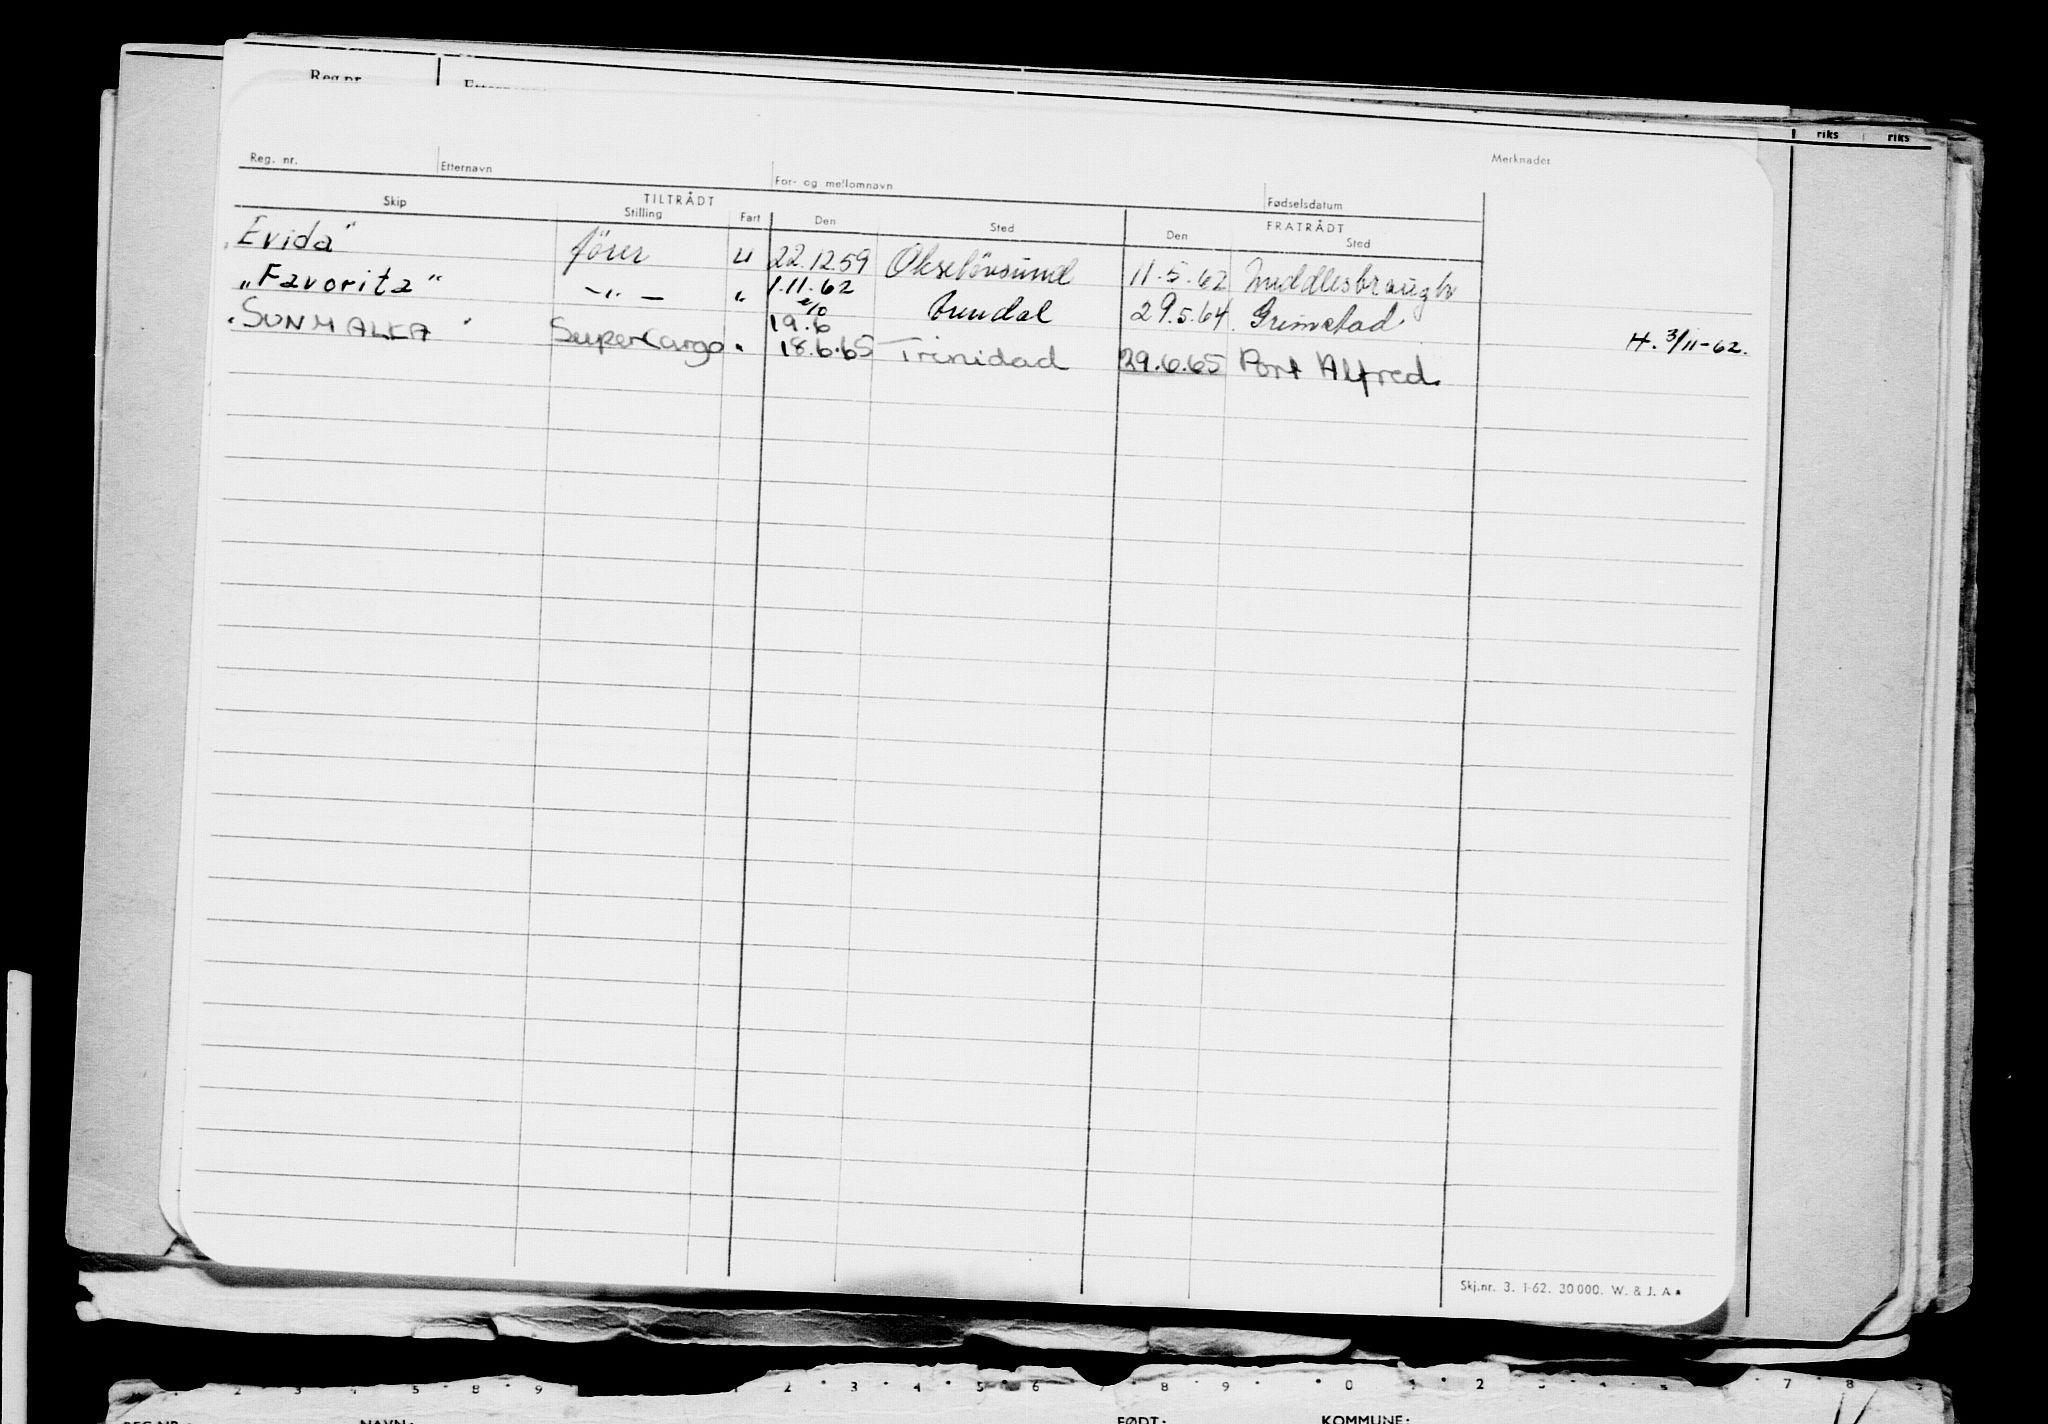 Reg. nr.
Etternavn
riks riks
Reg. nr. Etternavn For- og mellomnavn Fødselsdatum Merknader
TILTRÅDT FRATRÅDT
Skip Stilling Fart Den Sted Den Sted
"Evida" fører U 22.12.59 Okseløvsund 11.5.62 Middlesbraugh
"Favorita" -"- " 1.11.62 Arendal 29.5.64 Grimstad
19.6 H. 3/11-62.
"SUNMALKA" Supercargo " 18.6.65 Trinidad 29.6.65 Port Alfred
Skj.nr. 3. 1-62. 30 000. W. & J. A
2 3 4 5 8 9 1 2 3 4 5 6 7 8 9 0 1 2 3 7 8
REG.NR.: NAVN: FØDT: KOMMUNE: